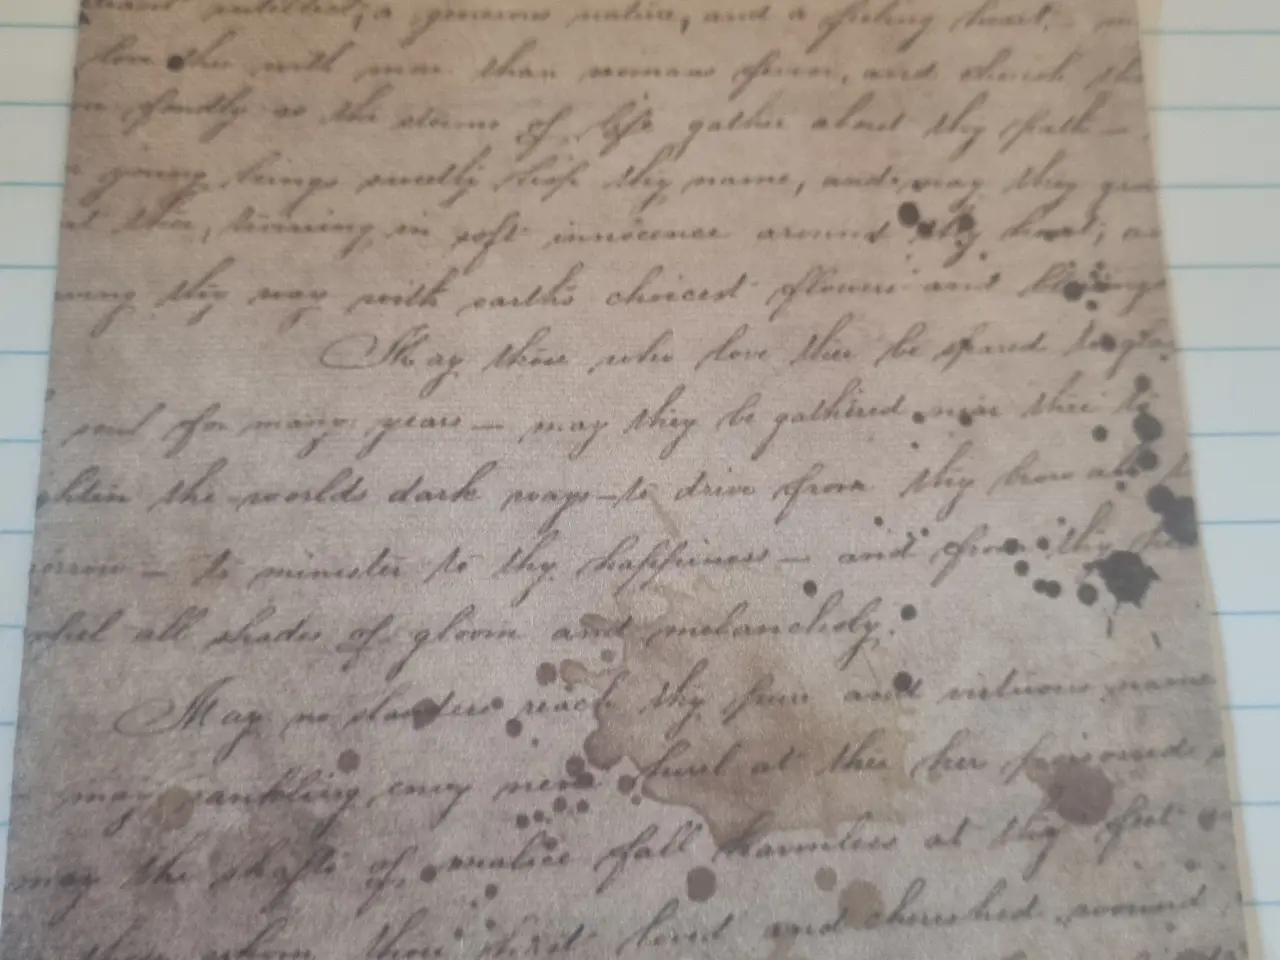 intellect, a generous nature, and a feeling heart.
love thee with more than womans and cherish
fondly as the storms of life gather about thy path —
young beings sweetly lisp thy name, and may they
thee, twining in soft innocence around thy heart;
thy way with earth's choicest flowers and blessings
May those who love thee be spared to
soul for many years — may they be gathered near thee to
the worlds dark ways — to drive from thy brow
— to minister to thy happiness — and from thy
all shades of gloom and melancholy.
May no slanders reach thy pure and virtuous name
may rankling envy never hurl at thee her poisoned
may the shafts of malice fall harmless at thy feet
whom thou shalt loved and cherished around